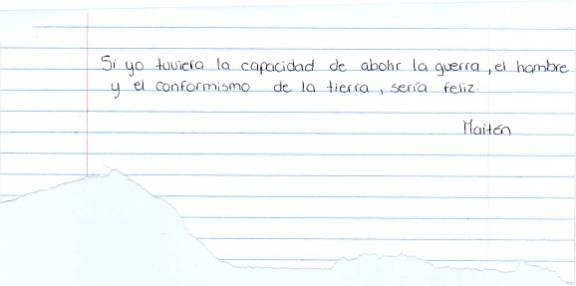 Si yo tuviera la capacidad de abolir la guerra, el hambre
y el conformismo de la tierra, sería feliz.
Maitén